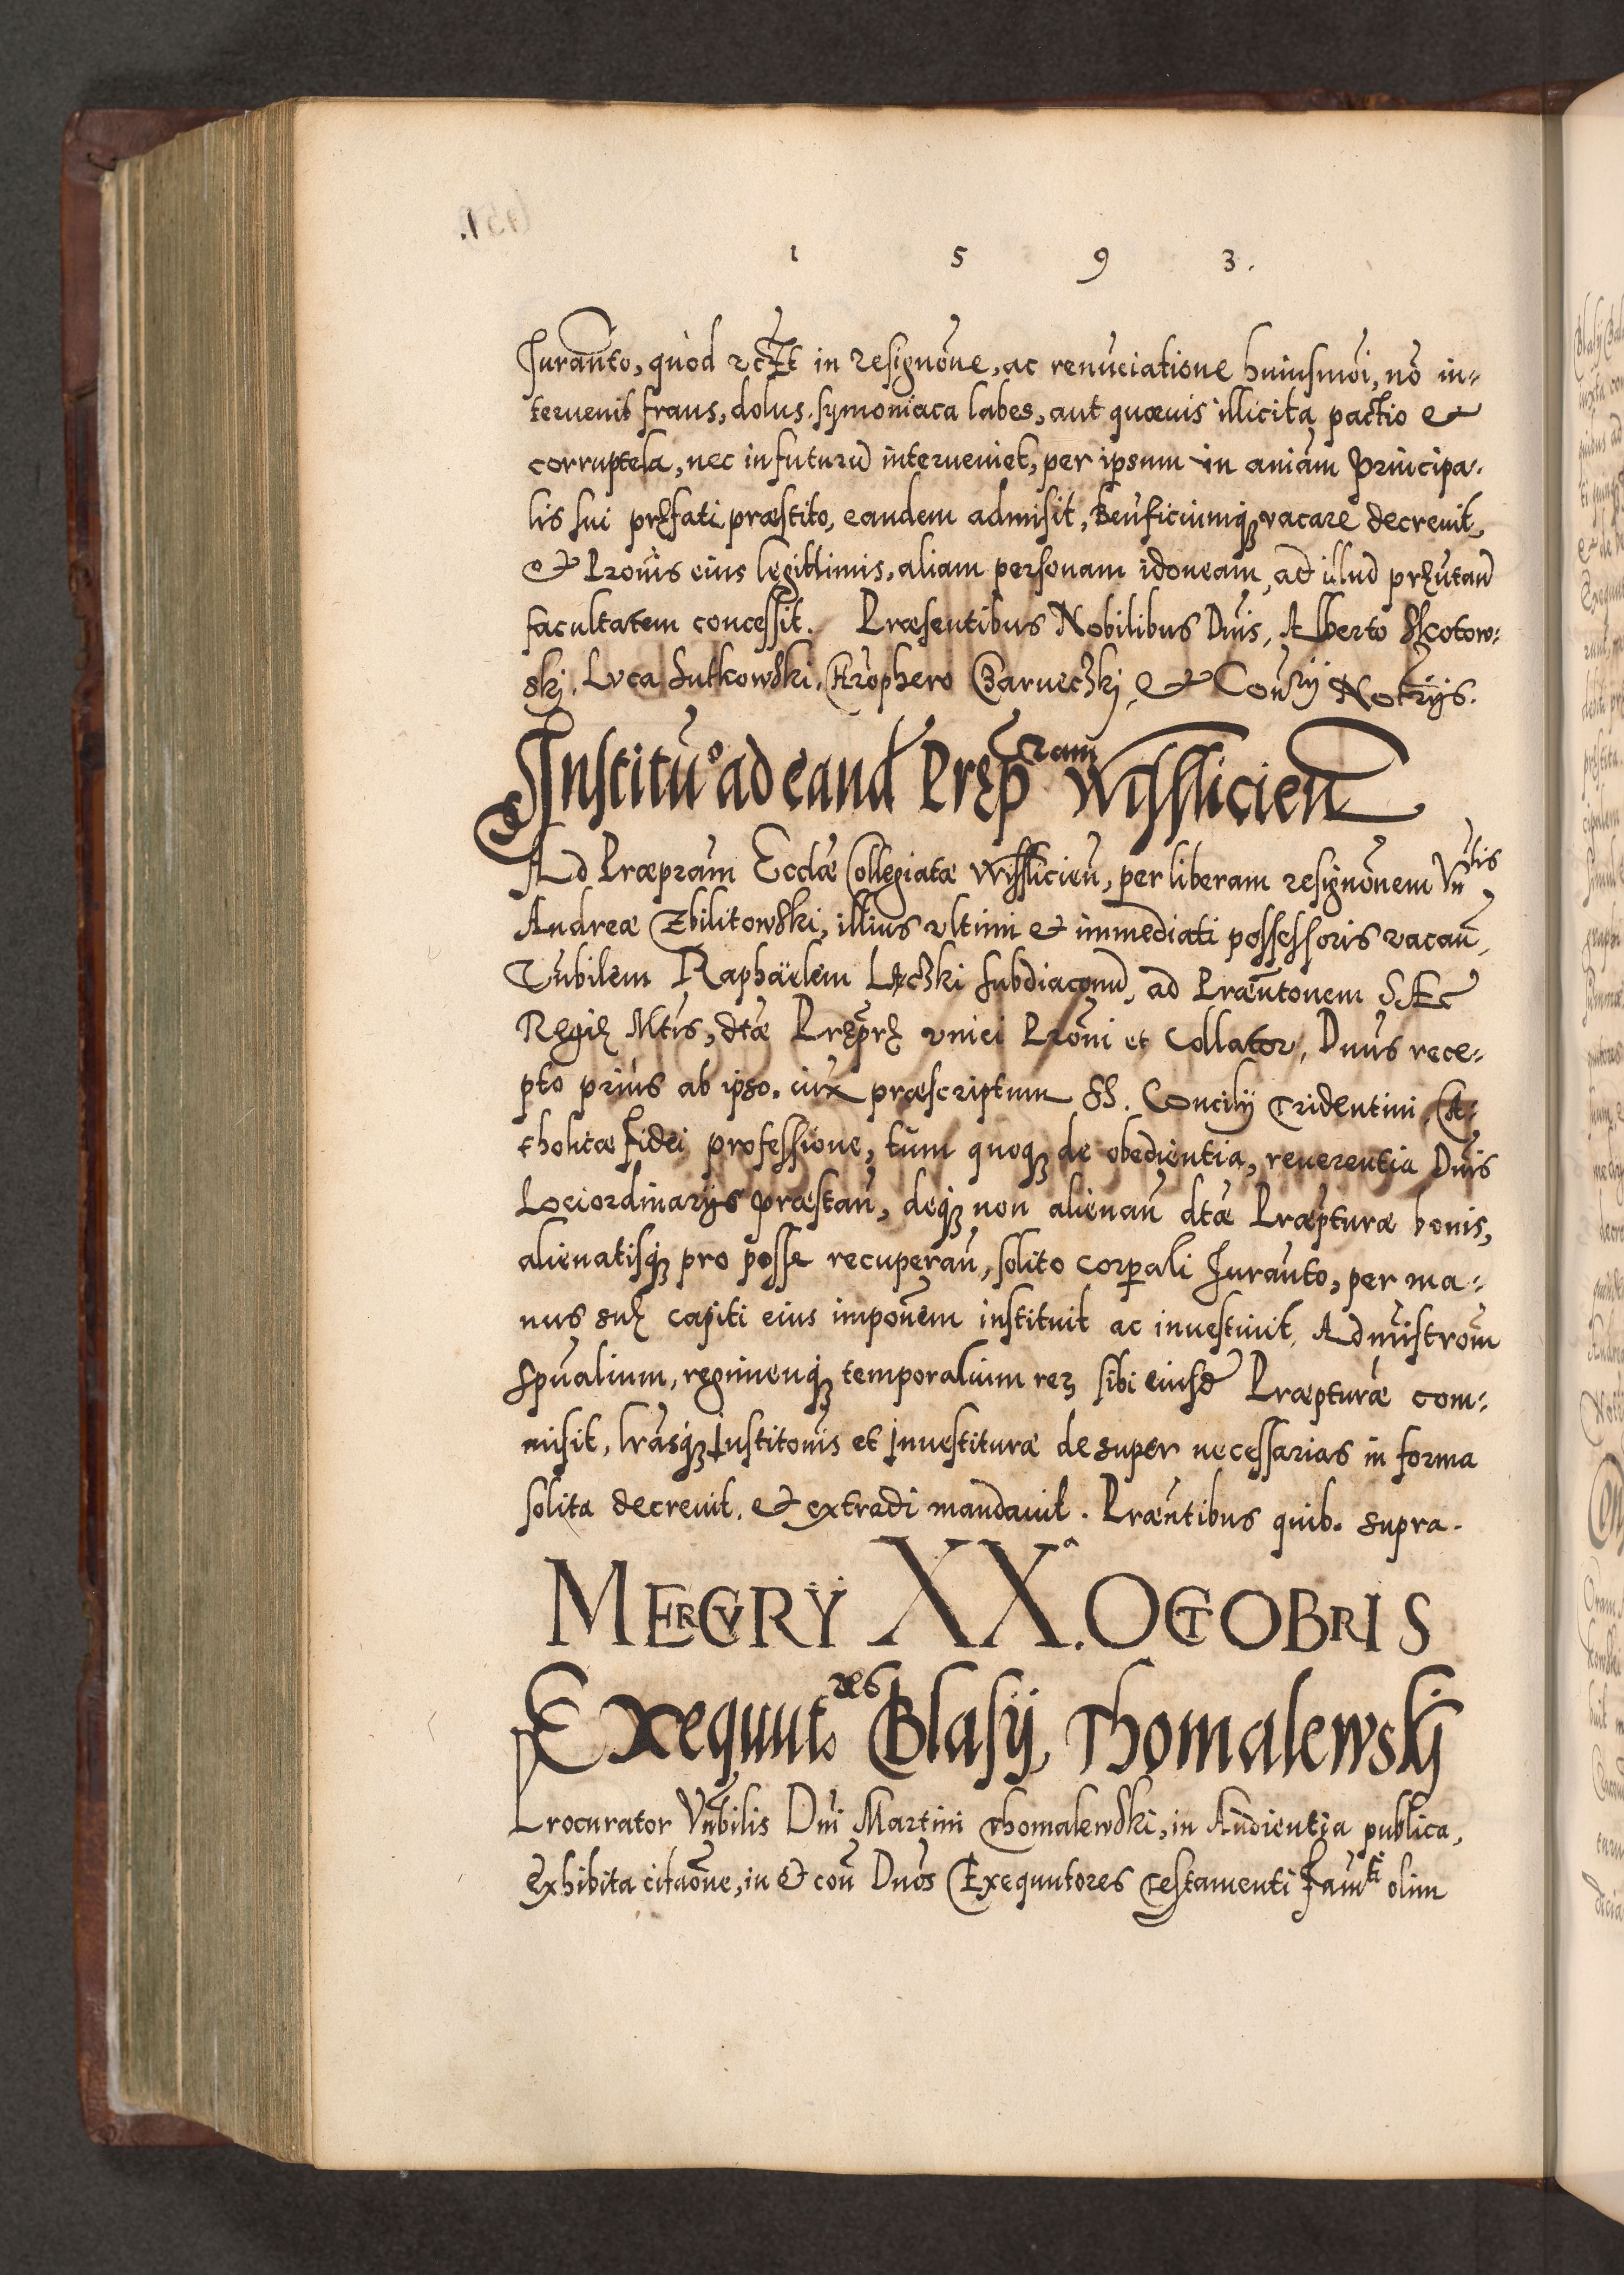 1 5 9 3.
Juranto, quòd in resignõne, ac renũciatione huiusmõi, nõ in=
teruenit fraus, dolus, symoniaca labes, aut quæuis illicita pactio et
corruptela, nec in futurũ interueniet, per ipsum in aniam Principa=
lis sui pręfati, præstito, eandem admisit, Beñficiumq; vacare decreuit,
et Pronis eius legittimis, aliam personam idoneam, ad illud
facultatem concessit. Præsentibus Nobilibus Dñis, Alberto Skotow=
skj, Luca Sutkowski, et Notrijs.
Institu° ad eand Pręp ram Wisslicien
Ad Præpram Ecclæ Collegiatæ Wisslicień, per liberam resignõnem Vñ lis
Andreæ Zbilitowski, illius vltimi et immediati possessoris vacań,
Raphäelem subdiaconũ, ad Præñtonem
Regię Mtis, dtæ vnici et Collator, Dnus rece=
pto priùs ab ipso, iux præscriptum SS. Concilij Tridentini, Ca=
tholicæ fidei professione, tum quoq; de obedientia, reuerentia Dñis
Lociordinarijs præstań, deq; non alienań dtæ Præpturæ bonis,
alienatisq; pro posse recuperań, solito corpali Juranto, per ma=
nus suę capiti eius imponem instituit ac inuestiuit, Admistrõm
spũalium, regimenq; temporalium rez sibi eiusd Præpturæ com=
misit, lrasq; Institonis et Inuestituræ desuper necessarias in forma
solita decreuit, et extradi mandauit. Præñtibus quib. supra.
MERCVRY XX.ª OCTOBRIS
Exequut. res Blasij Thomalewskj
Procurator Vñbilis Dni Martini Thomalewski, in Audientia publica,
exhibita citaõne, in et coñ Dnõs Exequutores testamenti Famti olim